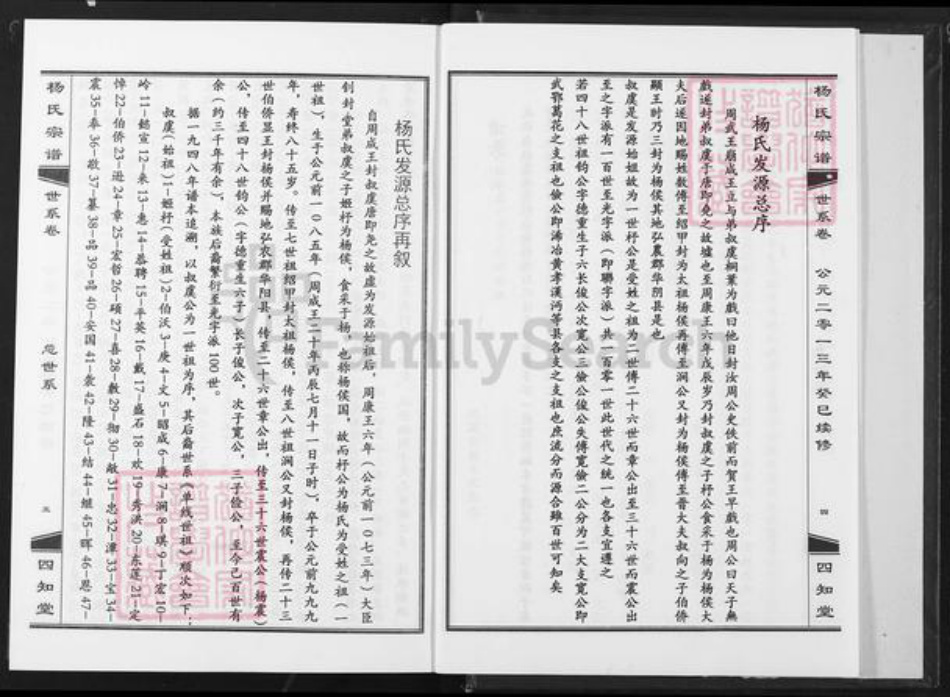 杨氏宗谱
世系卷
公元二零一三年癸巳续修
四
四知堂
杨氏发源总序
周武王崩成王立与弟叔虞桐葉为戲曰他日封汝周公史佚前而贺王早戲也周公曰天子無
戲遂封弟叔虞于唐即尧之故墟也至周康王六年戊辰岁乃封叔虞之子杼公食采于杨为杨侯大
夫后遂因地赐姓数傅至绍甲封为太祖杨侯再傅至涧公又封为杨侯傅至晋大夫叔向之子伯侨
顯王時乃三封为杨侯其地弘農郡华阴县是也
叔虞是发源始姐故为一世杼公是受姓之祖为二世傅二十六世而章公出至三十六世而震公出
至之字派有一百世至光字派（即聯字派）共一百零一世此世代之統一也各支宜遵之
若四十八世祖钧公字德重生子六长俊公次寬公三儉公俊公失傅寬儉二公分为二大支寬公即
武鄂葛花之支祖也儉公即浠冶黄孝漢沔等县各支之支祖也庶流分而源合雖百世可知矣
杨氏发源总序再叙
自周成王封叔虞唐即尧之故虚为发源始祖后，周康王六年（公元前一〇七三年）大臣
钊封堂弟叔虞之子姬杼为杨侯，食采于杨，也称杨侯国，故而杼公为杨氏为受姓之祖（一
世祖），生于公元前一〇八五年（周成王二十年丙辰七月十一日子时），卒于公元前九九九
年，寿终八十五岁。传至七世祖绍甲封太祖杨侯，传至八世祖涧公又封杨侯，再传二十三
世伯侨显王封杨侯并赐地弘农郡华阳县，传至二十六世章公出，传至三十六世震公（杨震）
公，传至四十八世钧公（字德重生六子）长子俊公，次子寬公，三子俭公，至今己百世有
余（约三千年有余），本族后裔繁衍至光字派100世。
据一九四八年谱本追溯，以叔虞公为一世祖为序，其后裔世系（单线世祖）顺次如下：
叔虞（始祖）1—姬杼（受姓祖）2—伯沃3—庚4—文5—昭成6—康7—涧8—琪9—丁宏10—
岭11—懿宣12—来13—惠14—恭聘15—平英16—戴17—盛石18—欢19—秀洪20—东莲21—定
悼22—伯侨23—逊24—章25—宏哲26—硕27—喜28—敷29—彻30—敞31—忠32—潭33—宝34—
震35—奉36—敬37—纂38—品39—亮40—安国41—裳42—隆43—结44—继45—晖46—恩47—
杨氏宗谱
世系卷
总世系
五
四知堂
FamilySearch